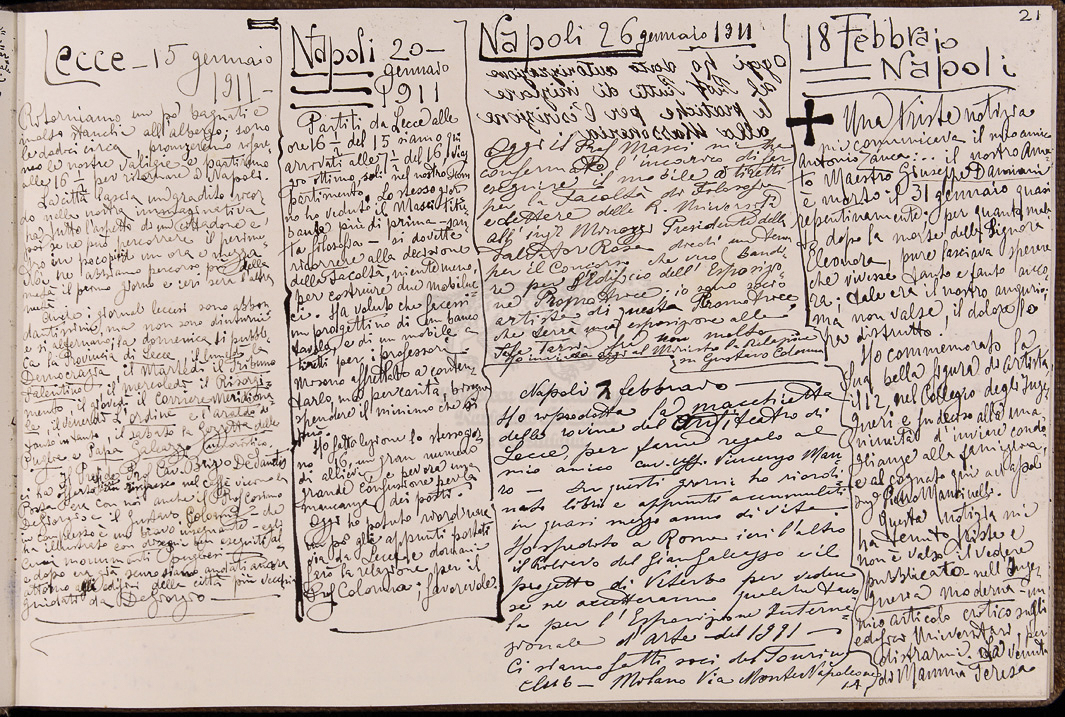 21
Lecce - 15 gennaio
1911 -
Ritorniamo un po' bagnati e
molto stanchi all'albergo; sono
le dodici circa, pranzeremo
le nostre valigie e partiremo
alle 16 per ritornare a Napoli.
La città lascia un gradito ricor
do nella nostra immaginativa
l'aspetto di un cittadone e
poi se ne può percorrere il perime
tro in poco più di un'ora e mezza
noi abbiamo percorso della
il primo giorno e ieri sera l'altra
I giornali leccesi sono abbon
dantissimi ma non sono diuturni
e si alternano, la domenica si pubbli
ca la Provincia di Lecce
Democrazia il Martedì il Tribuno
Salentino il mercoledì il Risorgi
mento, il giovedì il Corriere Meridiona
le, il venerdì L'ordine e l'araldo
il sabato la Gazzetta delle
Puglie e Papa Galeazzo
Il Prof. Cav. De Santis
ci ha offerto rinfresco nel caffè vicino la
Posta era con noi anche il Prof. Cosimo
De Giorgio e il Gustavo Colonna
in complesso è un bravo
ha illustrato con disegni
monumenti
e dopo siamo andati ancora
attorno agli edifici della città più vecchia
guidati da De Giorgio
Napoli 20 -
gennaio
1911
Partiti da Lecce alle
ore 16 ½ del 15 siamo
arrivati alle 7 ½ del 16, viag
gio ottimo, soli nel nostro com
partimento. Lo stesso gior
no ha veduto il Masci titu
bante più di prima - 
la filosofia - si dovette
ricorrere alla decisione
della Facoltà, nientemeno,
per costruire due mobiluc
ci. Ha voluto che facessi
un progettino di un banco
tavolo e di un mobile a
tiretti per i professori
Mi sono affrettato a conten
tarlo, ma per carità, bisogna
spendere il minimo che si
può.
Ho fatto lezione lo stesso gior
no 16, un gran numero
di allievi e perciò una
grande confusione per la
mancanza dei posti.
Oggi ho potuto riordinare
un po' gli appunti portati
da Lecce e domani
farò la relazione per il
Prof Colonna; favorevole.
Napoli 26 gennaio 1911
Oggi ho dato autorizzazione
al Prof Tutti di iniziare
le pratiche per l'iscrizione
alla Massoneria
Oggi il Prof Masci mi ha
confermato l'incarico di far
eseguire il mobile a tiretti
per la Facoltà di Filosofia
e Lettere della R. Università
All'ing. Presidente della
Salvator Rosa
per il Concorso che vuol bandi
re per l'Edificio dell'Esposizio
ne Promotrice. io sono socio
artista di questa Promotrice
che terrà una esposizione alle
Sale Tarsia che non molto
oggi al Ministro la Relazione
con Gustavo Colonna
Napoli 7 febbraio
Ho riprodotta la macchietta
delle rovine del Anfiteatro di
Lecce, per farne regalo al
mio amico cav. uff. Vincenzo Man
ro - In questi giorni ho riordi
nato libri e appunti accumulati
in quasi mezzo anno di vita
Ho spedito a Roma ieri l'altro
il rilievo del Giangaleazzo e il
progetto di Viterbo per vedere
se ne accetteranno qualche tavo
la per l'Esposizione Interna
zionale d'Arte del 1911 -
Ci siamo fatti soci del Touring
Club - Milano Via Monte Napoleone
14
18 Febbraio
Napoli
Una triste notizia
mi comunicava il mio amico
Antonio Zanca... il nostro Ama
to Maestro Giuseppe Damiani
è morto il 31 gennaio quasi
repentinamente; per quanto mala
to dopo la morte della Signora
Eleonora, pure lasciava sperare
che vivesse tanto e tanto anco
ra; tale era il nostro augurio;
ma non valse, il dolore lo
ha distrutto...
Ho commemorato la
sua bella figura di artista,
il 12, nel Collegio degli Inge
gneri e indussi alla una
nimità d'inviare condo
glianze alla famiglia
e al cognato qui a Napoli,
Sig. Pietro Mancinelli.
Questa notizia mi
ha tenuto triste e
non è valso il vedere
pubblicato nell'Inge
gneria moderna - un
mio articolo critico sugli
edifici Universitari, per
distrarmi. La venuta
di Mamma Teresa